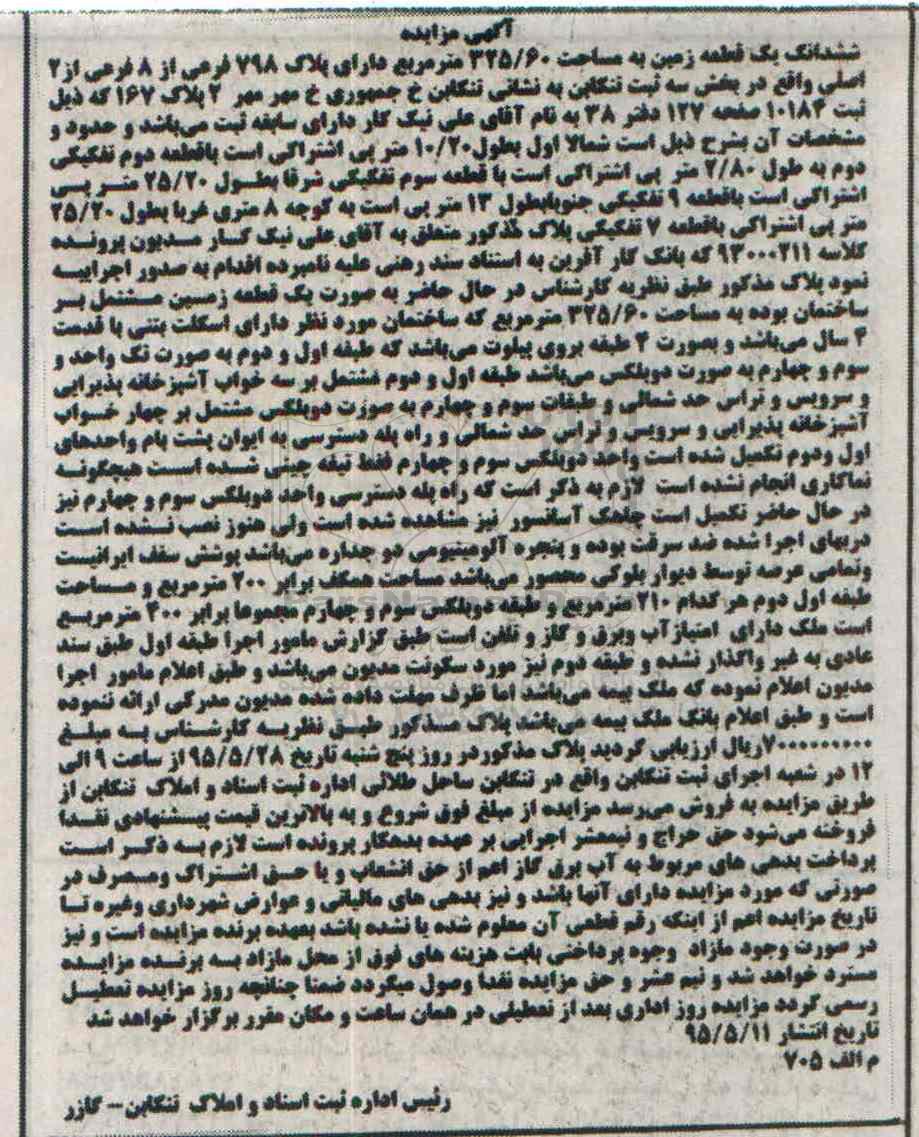 آگهی مزایده
ششدانگ یک قطعه زمین به مساحت ۳۲۵/۶۰ مترمربع دارای پلاک ۷۹۸ فرعی از ۸ فرعی از ۲
اصلی واقع در بخش سه ثبت تنکابن به نشانی تنکابن خ جمهوری خ مهر مهر ۲ پلاک ۱۶۷ که ذیل
ثبت ۱۰۱۸۴ صفحه ۱۲۷ دفتر ۳۸ به نام آقای علی نیک کار دارای سابقه ثبت می‌باشد و حدود و
مشخصات آن بشرح ذیل است شمالا اول بطول ۱۰/۲۰ متر پی اشتراکی است باقطعه دوم تفکیکی
دوم به طول ۲/۸۰ متر پی اشتراکی است با قطعه سوم تفکیکی شرقا بطول ۲۵/۲۰ متر پی
اشتراکی است باقطعه ۹ تفکیکی جنوبابطول ۱۳ متر پی است به کوچه ۸ متری غربا بطول ۲۵/۲۰
متر پی اشتراکی باقطعه ۷ تفکیکی پلاک مذکور متعلق به آقای علی نیک کار مدیون پرونده
کلاسه ۹۳۰۰۰۲۱۱ که بانک کار آفرین به استناد سند رهنی علیه نامبرده اقدام به صدور اجراییه
نمود پلاک مذکور طبق نظریه کارشناس در حال حاضر به صورت یک قطعه زمین مشتمل بر
ساختمان بوده به مساحت ۳۲۵/۶۰ مترمربع که ساختمان مورد نظر دارای اسکلت بتنی با قدمت
۴ سال می‌باشد و بصورت ۴ طبقه بروی پیلوت می‌باشد که طبقه اول و دوم به صورت تک واحد و
سوم و چهارم به صورت دوبلکس می‌باشد طبقه اول و دوم مشتمل بر سه خواب آشپزخانه پذیرایی
و سرویس و تراس حد شمالی و طبقات سوم و چهارم به صورت دوبلکس مشتمل بر چهار خواب
آشپزخانه پذیرایی و سرویس و تراس حد شمالی و راه پله دسترسی به ایوان پشت بام واحدهای
اول ودوم تکمیل شده است واحد دوبلکس سوم و چهارم فقط تیغه چینی شده است هیچگونه
نماکاری انجام نشده است لازم به ذکر است که راه پله دسترسی واحد دوبلکس سوم و چهارم نیز
در حال حاضر تکمیل است چاهک آسانسور نیز مشاهده شده است ولی هنوز نصب نشده است
دربهای اجرا شده ضد سرقت بوده و پنجره آلومینیومی دو جداره می‌باشد پوشش سقف ایرانیت
وتمامی عرصه توسط دیوار بلوکی محصور می‌باشد مساحت همکف برابر ۲۰۰ مترمربع و مساحت
طبقه اول دوم هر کدام ۲۱۰ مترمربع و طبقه دوبلکس سوم و چهارم مجموعا برابر ۴۰۰ مترمربع
است ملک دارای امتیازآب وبرق و گاز و تلفن است طبق گزارش مامور اجرا طبقه اول طبق سند
عادی به غیر واگذار نشده و طبقه دوم نیز مورد سکونت مدیون می‌باشد و طبق اعلام مامور اجرا
مدیون اعلام نموده که ملک بیمه می‌باشد اما ظرف مهلت داده شده مدیون مدرکی ارائه ننموده
است و طبق اعلام بانک ملک بیمه می‌باشد پلاک مذکور طبق نظریه کارشناس به مبلغ
۷۰۰۰۰۰۰۰۰۰ریال ارزیابی گردید پلاک مذکوردر روز پنج شنبه تاریخ ۹۵/۵/۲۸ از ساعت ۹ الی
۱۲ در شعبه اجرای ثبت تنکابن واقع در تنکابن ساحل طلائی اداره ثبت اسناد و املاک تنکابن از
طریق مزایده به فروش می‌رسد مزایده از مبلغ فوق شروع و به بالاترین قیمت پیشنهادی نقدا
فروخته می‌شود حق حراج و نیمعشر اجرایی بر عهده بدهکار پرونده است لازم به ذکر است
پرداخت بدهی های مربوط به آب برق گاز اعم از حق انشعاب و یا حق اشتراک ومصرف در
صورتی که مورد مزایده دارای آنها باشد و نیز بدهی های مالیاتی و عوارض شهرداری وغیره تا
تاریخ مزایده اعم از اینکه رقم قطعی آن معلوم شده یا نشده باشد بعهده برنده مزایده است و نیز
در صورت وجود مازاد وجوه پرداختی بابت هزینه های فوق از محل مازاد به برنده مزایده
مسترد خواهد شد و نیم عشر و حق مزایده نقدا وصول میگردد ضمنا چنانچه روز مزایده تعطیل
رسمی گردد مزایده روز اداری بعد از تعطیلی در همان ساعت و مکان مقرر برگزار خواهد شد
تاریخ انتشار ۹۵/۵/۱۱
م الف ۷۰۵
رئیس اداره ثبت اسناد و املاک تنکابن– گازر